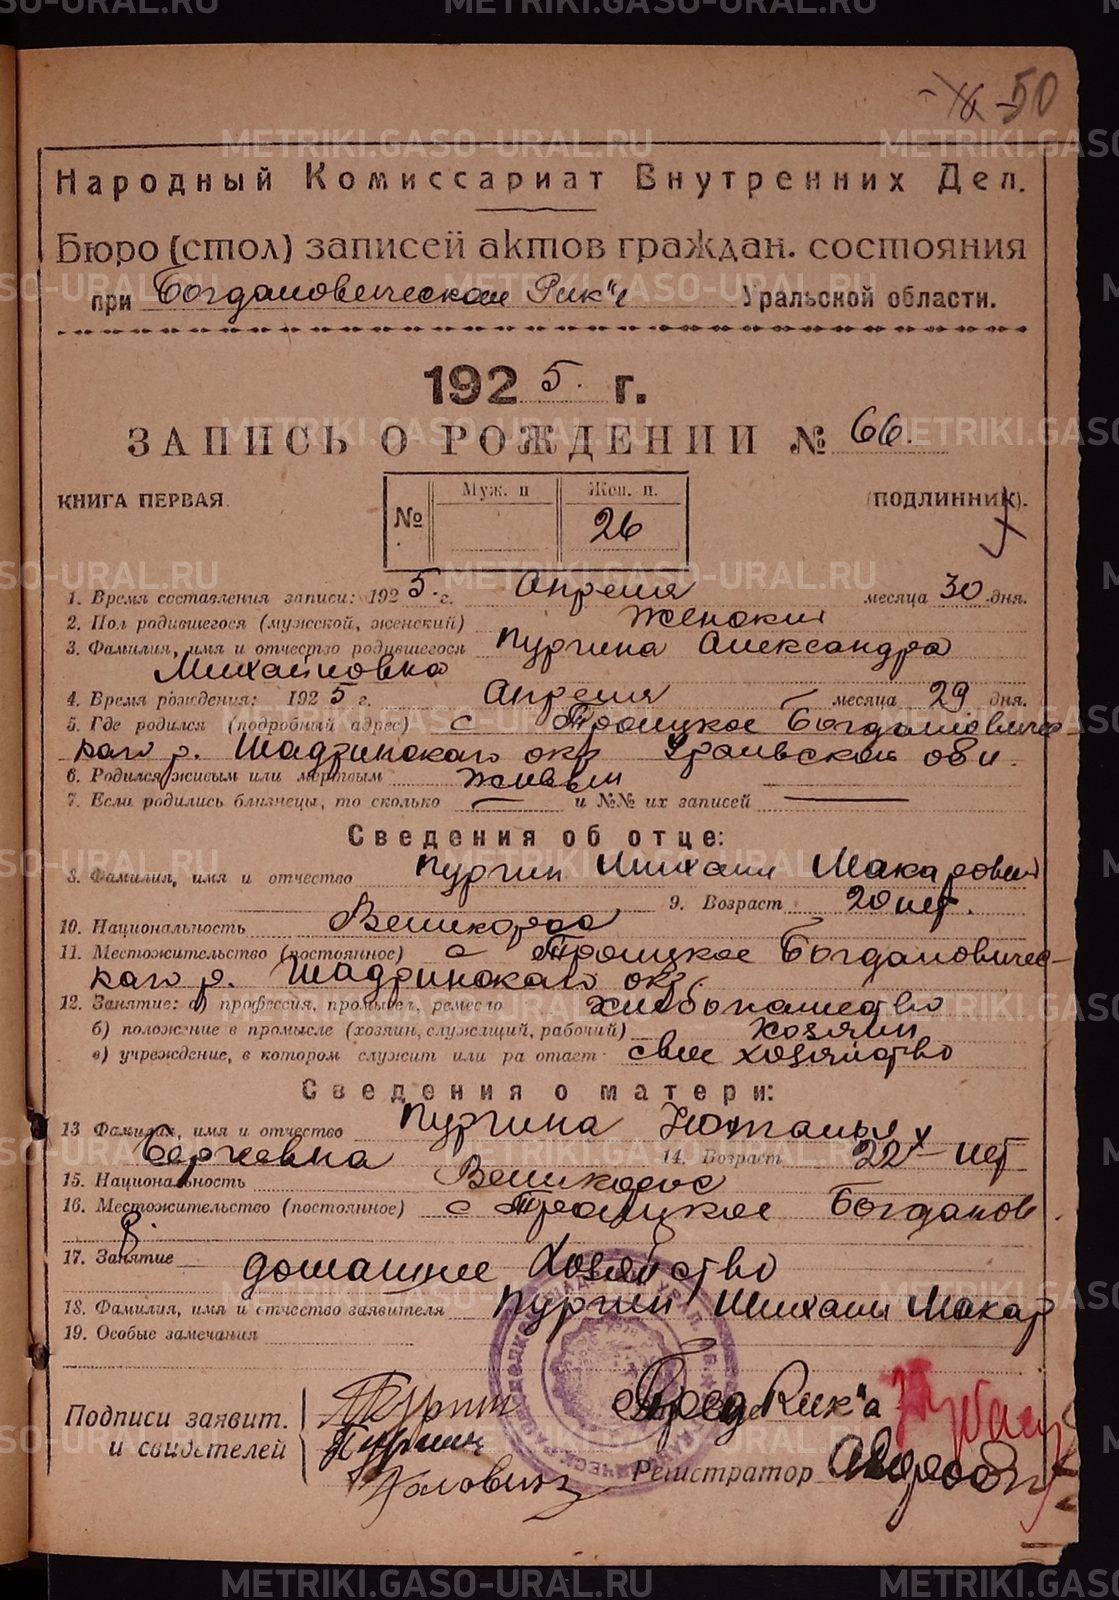 50
Народный Комиссариат Внутренних Дел.
Бюро (стол) записей актов граждан. состояния
при Богдановическом Рик"е Уральской области.
1925. г.
ЗАПИСЬ О РОЖДЕНИИ № 66.
КНИГА ПЕРВАЯ. № Муж. п Жен. п. 26 (ПОДЛИННИК).
1. Время составления записи: 1925. г. Апреля месяца 30 дня.
2. Пол родившегося (мужской, женский) женский
3. Фамилия, имя и отчество родившегося Пургина Александра
Михайловна
4. Время рождения: 1925 г. Апреля месяца 29 дня.
5. Где родился (подробный адрес) с Троицкое Богдановичес-
каго р. Шадринскаго окр Уральской обл.
6. Родился живым или мертвым живым
7. Если родились близнецы, то сколько — и №№ их записей —
Сведения об отце:
8. Фамилия, имя и отчество Пургин Михаил Макарович
9. Возраст 20 лет.
10. Национальность Великоросс
11. Местожительство (постоянное) с Троицкое Богдановичес-
каго р. Шадринскаго окр.
12. Занятие: а) профессия, промысел, ремесло хлебопашество
б) положение в промысле (хозяин, служащий, рабочий) хозяин
в) учреждение, в котором служит или ра отает свое хозяйство
Сведения о матери:
13 Фамилия, имя и отчество Пургина
Сергеевна 14. Возраст 22 лет
15. Национальность Великорос
16. Местожительство (постоянное) с Троицкое Богданов.
р.
17. Занятие домашнее хозяйство
18. Фамилия, имя и отчество заявителя Пургин Михаил Макар
19. Особые замечания
Подписи заявит. Пургин Пред Рик"а
и свидетелей Пургин
Головин Регистратор
METRIKI.GASO-URAL.RU